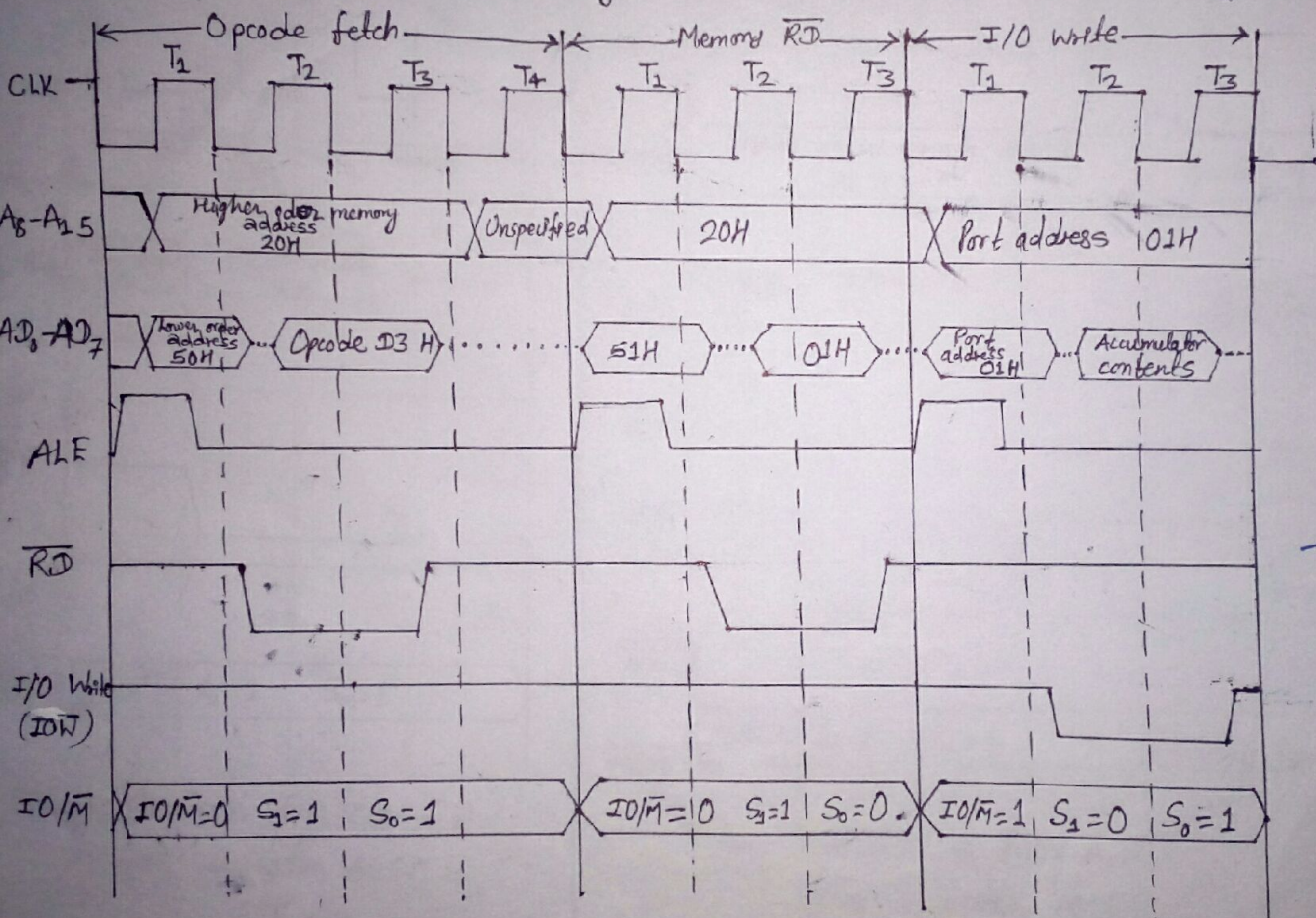 Opcode fetch Memory R̅D̅ I/O write
T₁ T₂ T₃ T₄ T₁ T₂ T₃ T₁ T₂ T₃
CLK
A₈-A₁₅
Higher order memory
address
20H
Unspecified
20H
Port address 01H
AD₀-AD₇
Lower order
address
50H
Opcode D3 H
51H
01H
Port
address
01H
Accumulator
contents
ALE
R̅D̅
I/O Write
(IOW̅)
IO/M̅
IO/M̅=0 S₁=1 S₀=1
IO/M̅=0 S₁=1 S₀=0
IO/M̅=1 S₁=0 S₀=1